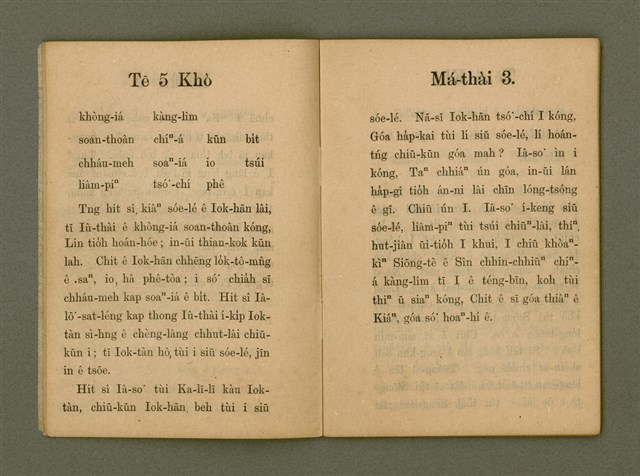 Tē 5 Khò
khòng-iá kàng-lîm
soan-thoân chíⁿ-á kūn bi̍t
chháu-meh soaⁿ-iá io tsúi
liâm-piⁿ tsó͘-chí phê
Tng hit sî, kiâⁿ sóe-lé ê Iok-hān lâi,
tī Iù-thài ê khòng-iá soan-thoân kóng,
Lín tio̍h hoán-hóe; in-ūi thian-kok kūn
lah. Chit ê Iok-hān chhēng lo̍k-tô-mn̂g
ê saⁿ, io, hâ phê-tòa; i só͘ chia̍h sī
chháu-meh kap soaⁿ-iá ê bi̍t. Hit sî Iâ-
lō͘-sat-léng kap thong Iù-thài í-ki̍p Iok-
tàn sì-hng ê chèng-lâng chhut-lâi chiū-
kūn i; tī Iok-tàn hô, tùi i siū sóe-lé, jīn
in ê tsōe.
Hit sî Iâ-so͘ tùi Ka-lī-lī kàu Iok-
tàn, chiū-kūn Iok-hān, beh tùi i siū
Má-thài 3.
sóe-lé. Nā-sī Iok-hān tsó͘-chí I kóng,
Góa ha̍p-kai tùi lí siū sóe-lé, lí hoán-
tńg chiū-kūn góa mah? Iâ-so͘ ìn i
kóng, Taⁿ chhiáⁿ ún góa, in-ūi lán
ha̍p-gî tio̍h án-ni lâi chīn lóng-tsóng
ê gī. Chiū ún I. Iâ-so͘ í-keng siū
sóe-lé, liâm-piⁿ tùi tsúi chiūⁿ-lâi, thiⁿ
hut-jiân ūi-tio̍h I khui, I chiū khòaⁿ-
kìⁿ Siōng-tè ê Sîn chhin-chhiūⁿ chíⁿ-
á kàng-lîm tī I ê téng-bīn, koh tùi
thiⁿ ū siaⁿ kóng, Chit ê sī góa thiàⁿ ê
Kiáⁿ, góa só͘ hoaⁿ-hí ê.